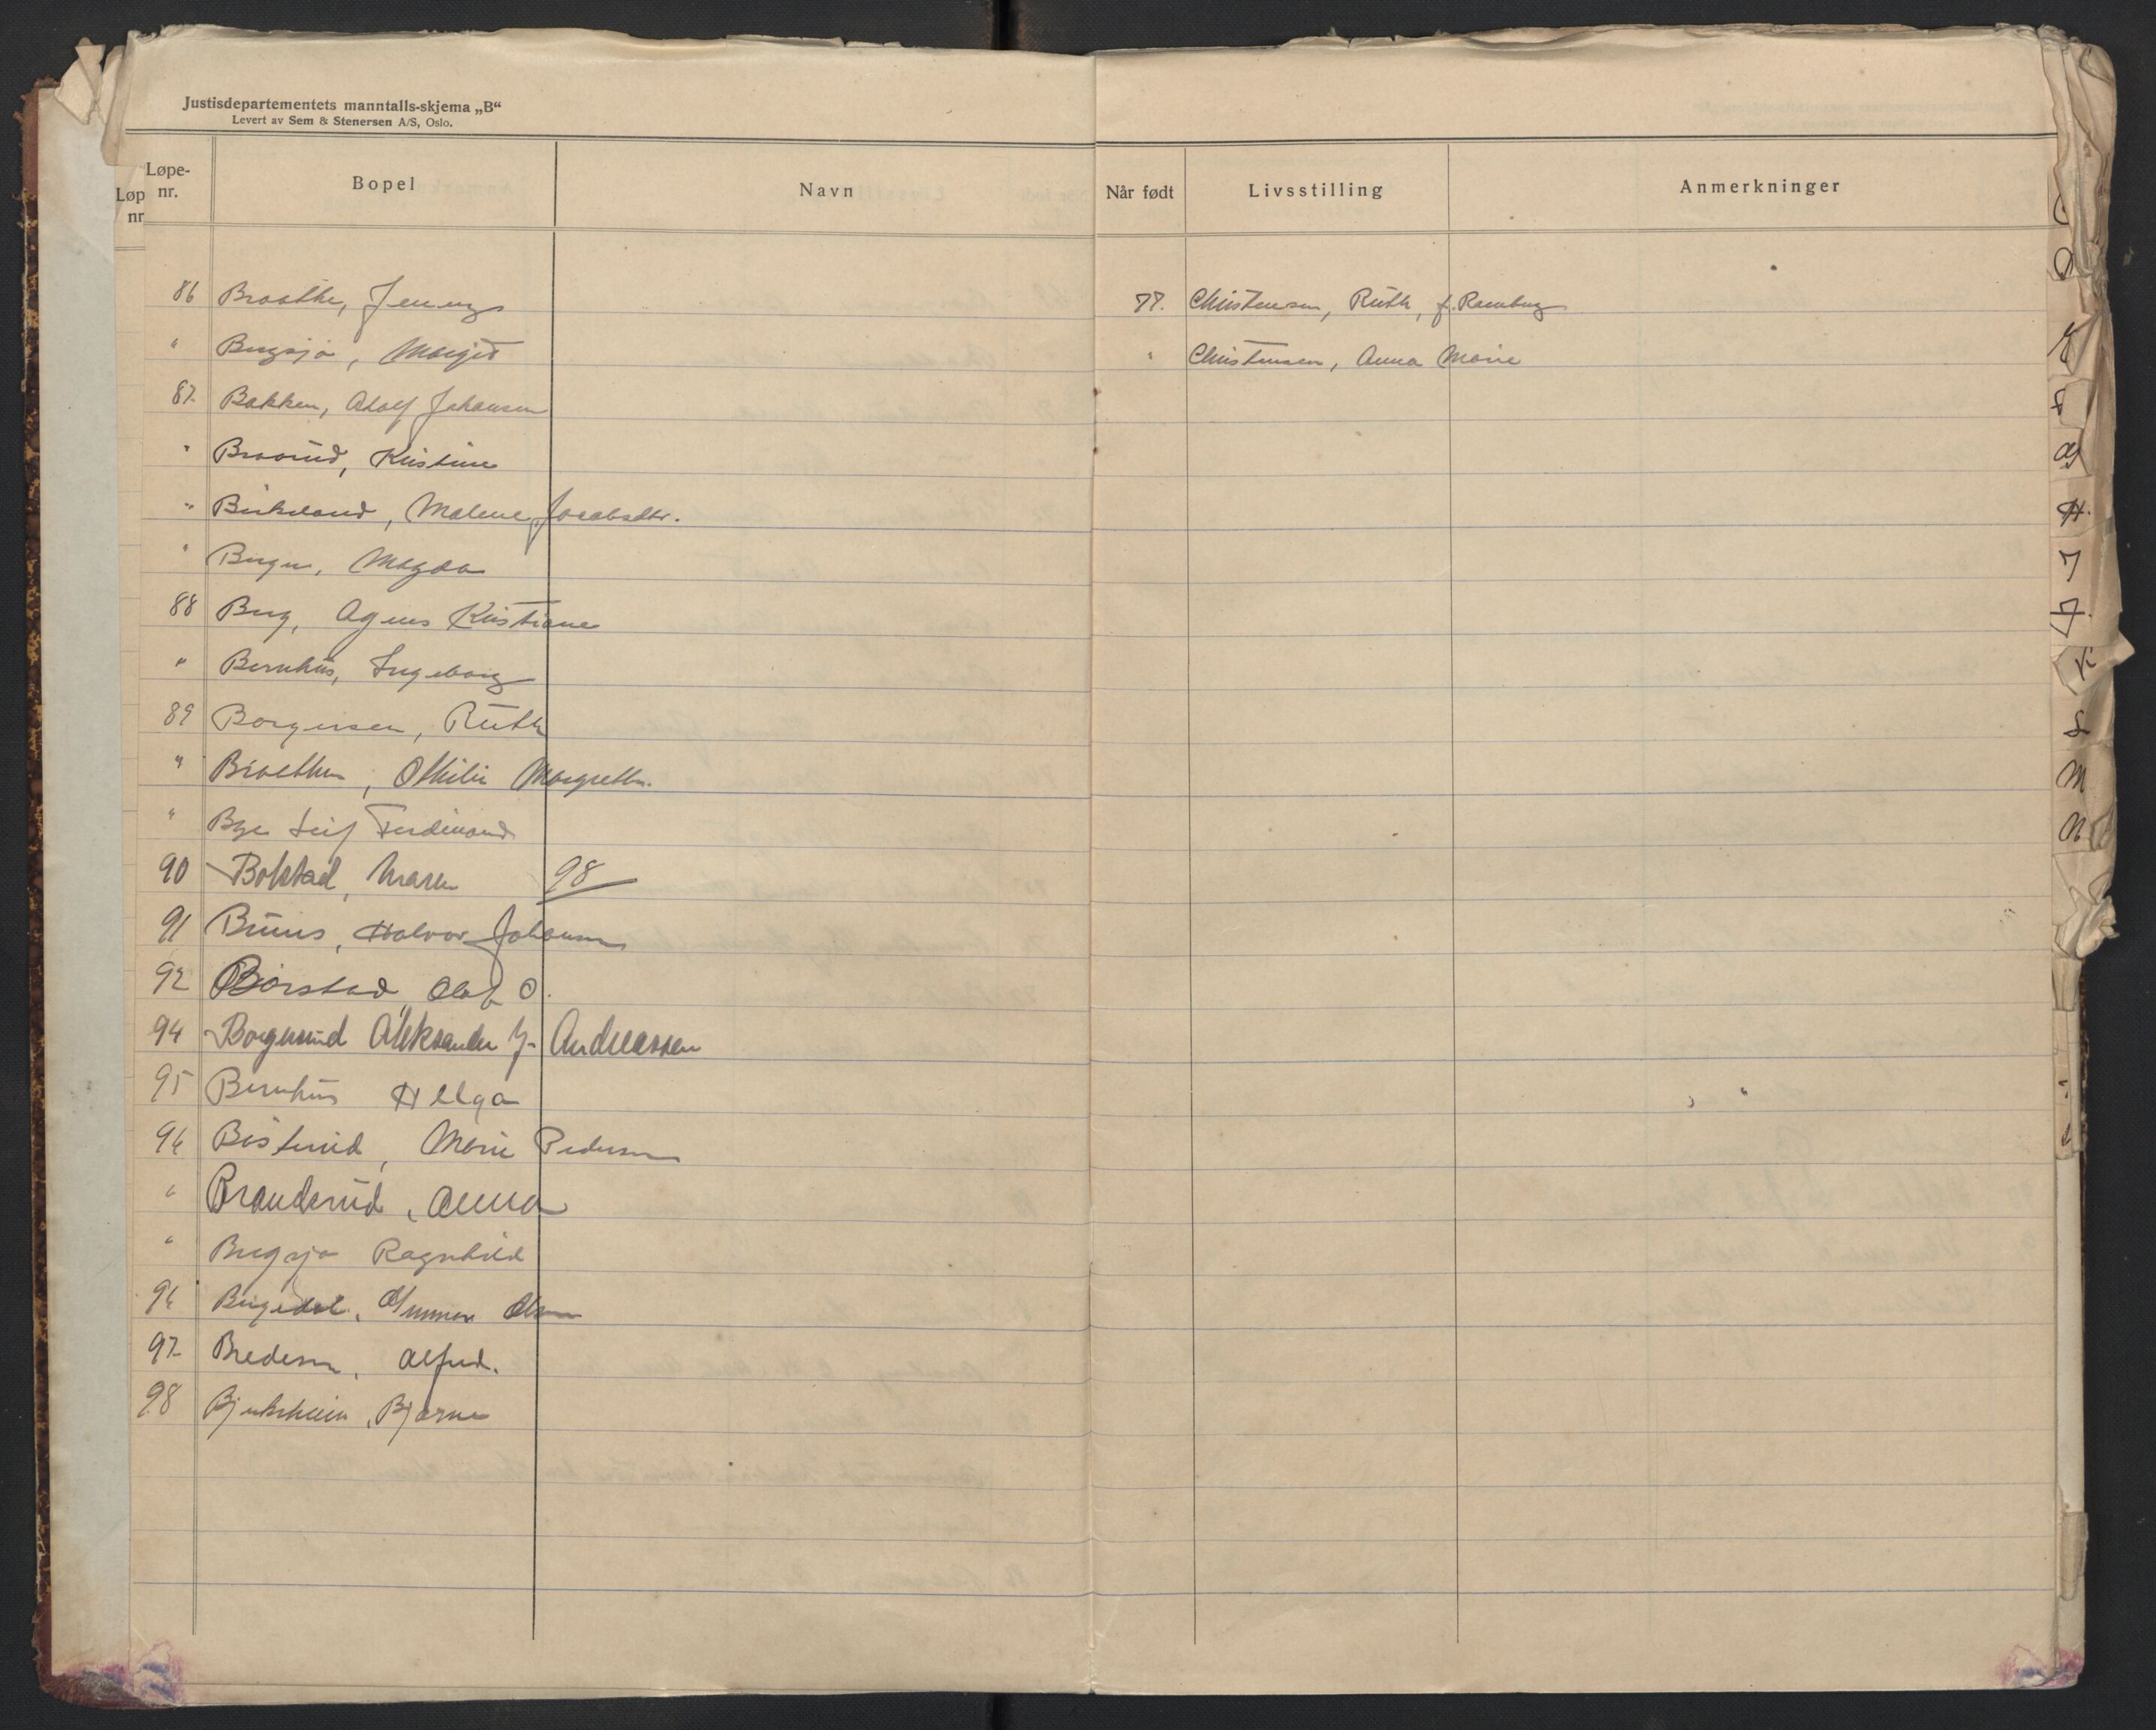 Justisdepartementets manntalls-skjema „B“
Levert av Sem & Stenersen A/S, Oslo.
Løpe-nr. Bopel Navn
Løp nr
86 Braathe, Jenny
" Bergsjø, Margit
87. Bakken, Adolf Johansen
" Braarud, Kristine
" Birkeland, Malene Jacobsdtr.
" Berger, Magda
88 Berg, Agnes Kristiane
" Bernhus, Ingeborg
89 Borgersen, Ruth
" Braathen, Othilie Margrethe.
" Bye Leif Ferdinand
90 Bolstad, Maren 98
91 Buus, Halvor Johansen
92 Borstad, Olaf O.
94 Borgerud Aleksander J. Andreassen
95 Bernhus Helga
96 Marie Pedersen
" Brauderud, Anna
" Bergsjø Ragnhild
96 Bergedal, Gunnar Olsen
97. Bredesen, Alfred.
98 Bjerkheim, Bjarne
Når født Livsstilling Anmerkninger
77. Christensen, Ruth, f. Ramberg
" Christensen, Anna Marie
D
E
F
G
H.
I
J.
K
L
M
N